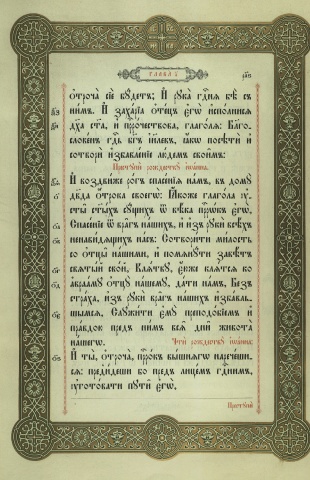 ГЛАВА́ а҃.
Ѻ҆троча̀ сїѐ бꙋ́детъ; И҆ рꙋка̀ гд҇нѧ бѣ̀ съ
ни́мъ. И҆ заха́рїа ѻ҆те́цъ є҆гѡ̀ и҆спо́лнисѧ
дх҃а ст҃а, и҆ прⷪ҇ро́чествова, глаго́лѧ: Бл҃го-
слове́нъ гд҇ь бг҃ъ і҆и҃левъ, ꙗ҆́кѡ посѣтѝ и҆
сотворѝ и҆збавле́нїе лю́демъ свои̑мъ:
И҆ воздви́же ро́гъ спасе́нїѧ на́мъ, въ домꙋ̀
дв҃да ѻ҆́трока своегѡ̀: Ꙗ҆́коже глаго́ла ᲂу҆-
сты̀ ст҃ы́хъ сꙋ́щихъ ѿ вѣ́ка прⷪ҇рѡ́къ є҆гѡ̀,
Спасе́нїе ѿ вра̑гъ на́шихъ, и҆ и҆з̾ рꙋкѝ всѣ́хъ
ненави́дѧщихъ на́съ: Сотвори́ти ми́лость
со ѻ҆тцы̑ на́шими, и҆ помѧнꙋ́ти завѣ́тъ
ст҃ы́й сво́й, Клѧ́твꙋ, є҆́юже клѧ́тсѧ ко
а҆враа́мꙋ ѻ҆тцꙋ̀ на́шемꙋ, да́ти на́мъ, Без̾
стра́ха, и҆з̾ рꙋкѝ вра̑гъ на́шихъ и҆зба́вль-
шымсѧ, Слꙋжи́ти є҆мꙋ̀ преподо́бїемъ и҆
пра́вдою пред̾ ни́мъ всѧ̑ дни̑ живота̀
на́шегѡ.
И҆ ты̀, ѻ҆троча̀, прⷪ҇ро́къ вы́шнѧгѡ нарече́ши-
сѧ: пред̾и́деши бо пред̾ лице́мъ гд҇нимъ,
ᲂу҆гото́вати пꙋти̑ є҆гѡ̀,